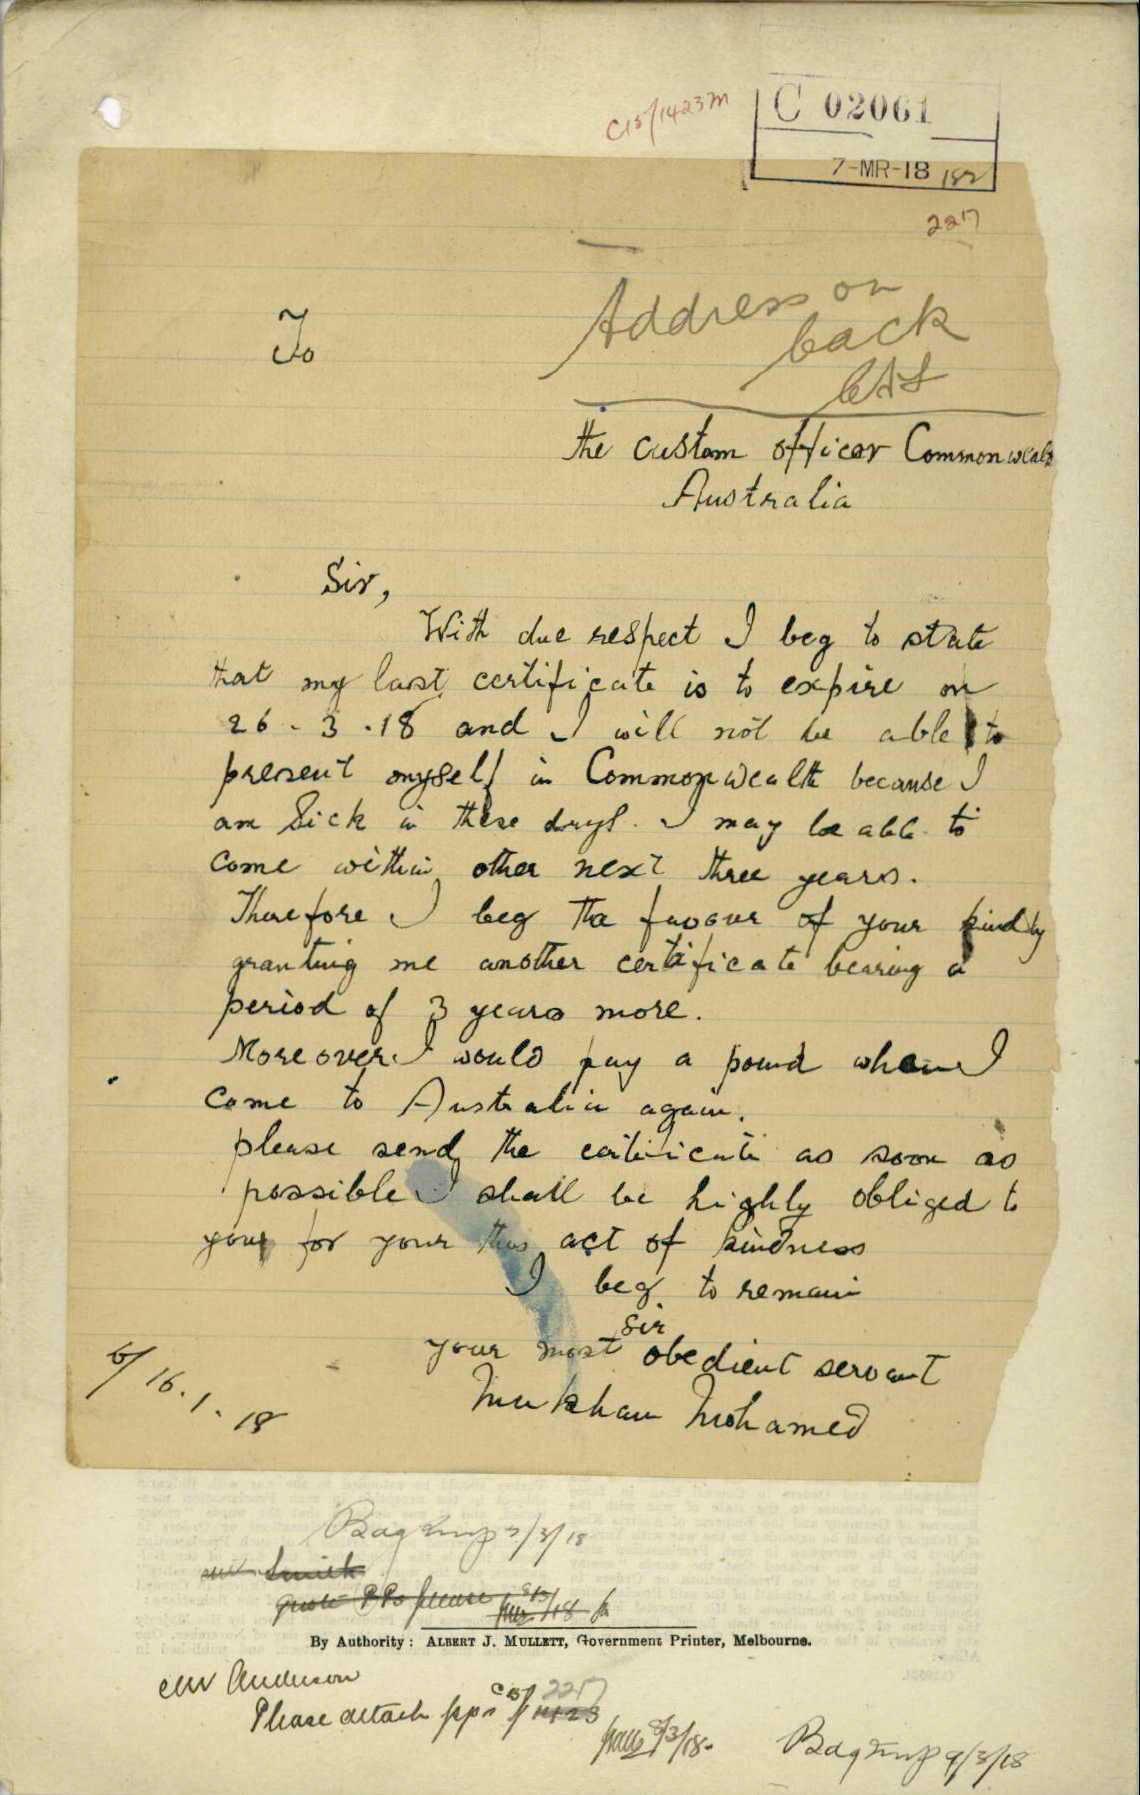 C15/1423M
C 02061
7-MR-18
2217
Address on
back
To
the custom officer Commonwealt
Australia
Sir,
With due respect I beg to state
that my last certificate is to expire on
26 - 3 - 18 and I will not be able to
present myself in Commonwealth because I
am Sick in these days. I may be able to
come within other next three years.
Therefore I beg the favour of your kindly
granting me another certificate bearing a
period of 3 years more.
Moreover I would pay a pound when I
come to Australia again.
please send the certificate as soon as
possible I shall be highly obliged to
your for your this act of kindness
I beg to remain
Sir
your most obedient servant
Mukhan Mohamed
16.1.18
7/3/18
Smith
please
By Authority: ALBERT J. MULLETT, Government Printer, Melbourne.
Mr Anderson
Please attach pprs C15/1423 2217
8/3/18.
9/3/18